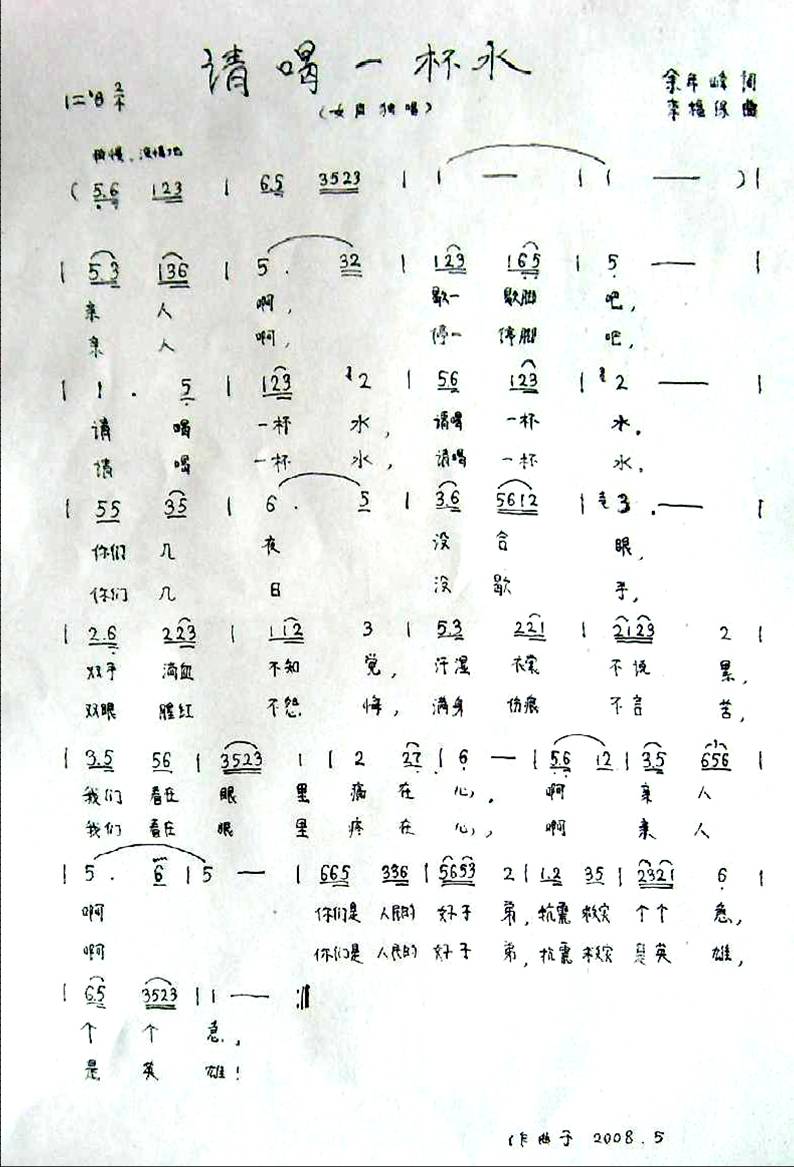 请喝一杯水
(女声独唱)
1=♭B 2/4
余年峰 词
李 曲
稍慢、深情地
( 5.6 123 | 6.5 3523 | 1 — | 1 — ) |
| 5.3 136 | 5. 32 | 123 165 | 5 — |
亲 人 啊, 歇一 歇脚 吧,
亲 人 啊, 停一 停脚 吧,
| 1. 5 | 123 2 | 56 123 | 2 — |
请 喝 一杯 水, 请喝 一杯 水。
请 喝 一杯 水, 请喝 一杯 水。
| 55 35 | 6. 5 | 3.6 5612 | 3. — |
你们 几 夜 没 合 眼,
你们 几 日 没 歇 手,
| 2.6 223 | 112 3 | 5.3 221 | 2123 2 |
双手 滴血 不知 觉, 汗湿 衣裳 不说 累,
双眼 腥红 不怨 悔, 满身 伤痕 不言 苦,
| 3.5 56 | 3523 1 | 2 27 | 6 — | 5.6 12 | 3.5 656 |
我们 看在 眼 里 痛 在 心, 啊 亲 人
我们 看在 眼 里 疼 在 心, 啊 亲 人
| 5. 6 | 5 — | 665 336 | 5653 2 | 1.2 35 | 2321 6 |
啊 你们是 人民的 好子 弟, 抗震 救灾 个个 急,
啊 你们是 人民的 好子 弟, 抗震 救灾 是英 雄,
| 6.5 3523 | 1 — :||
个 个 急,
是 英 雄!
作曲于 2008.5